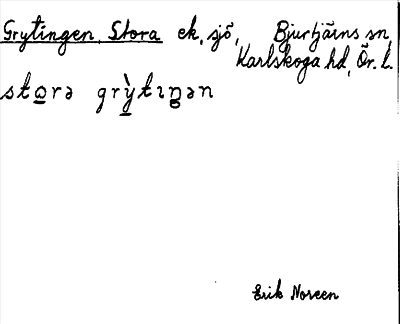 Grytingen, Stora ek, sjö, Bjurtjärns sn
Karlskoga hd, Ör. l.
sto̲rə grỳ̲tɩŋən
Erik Noreen